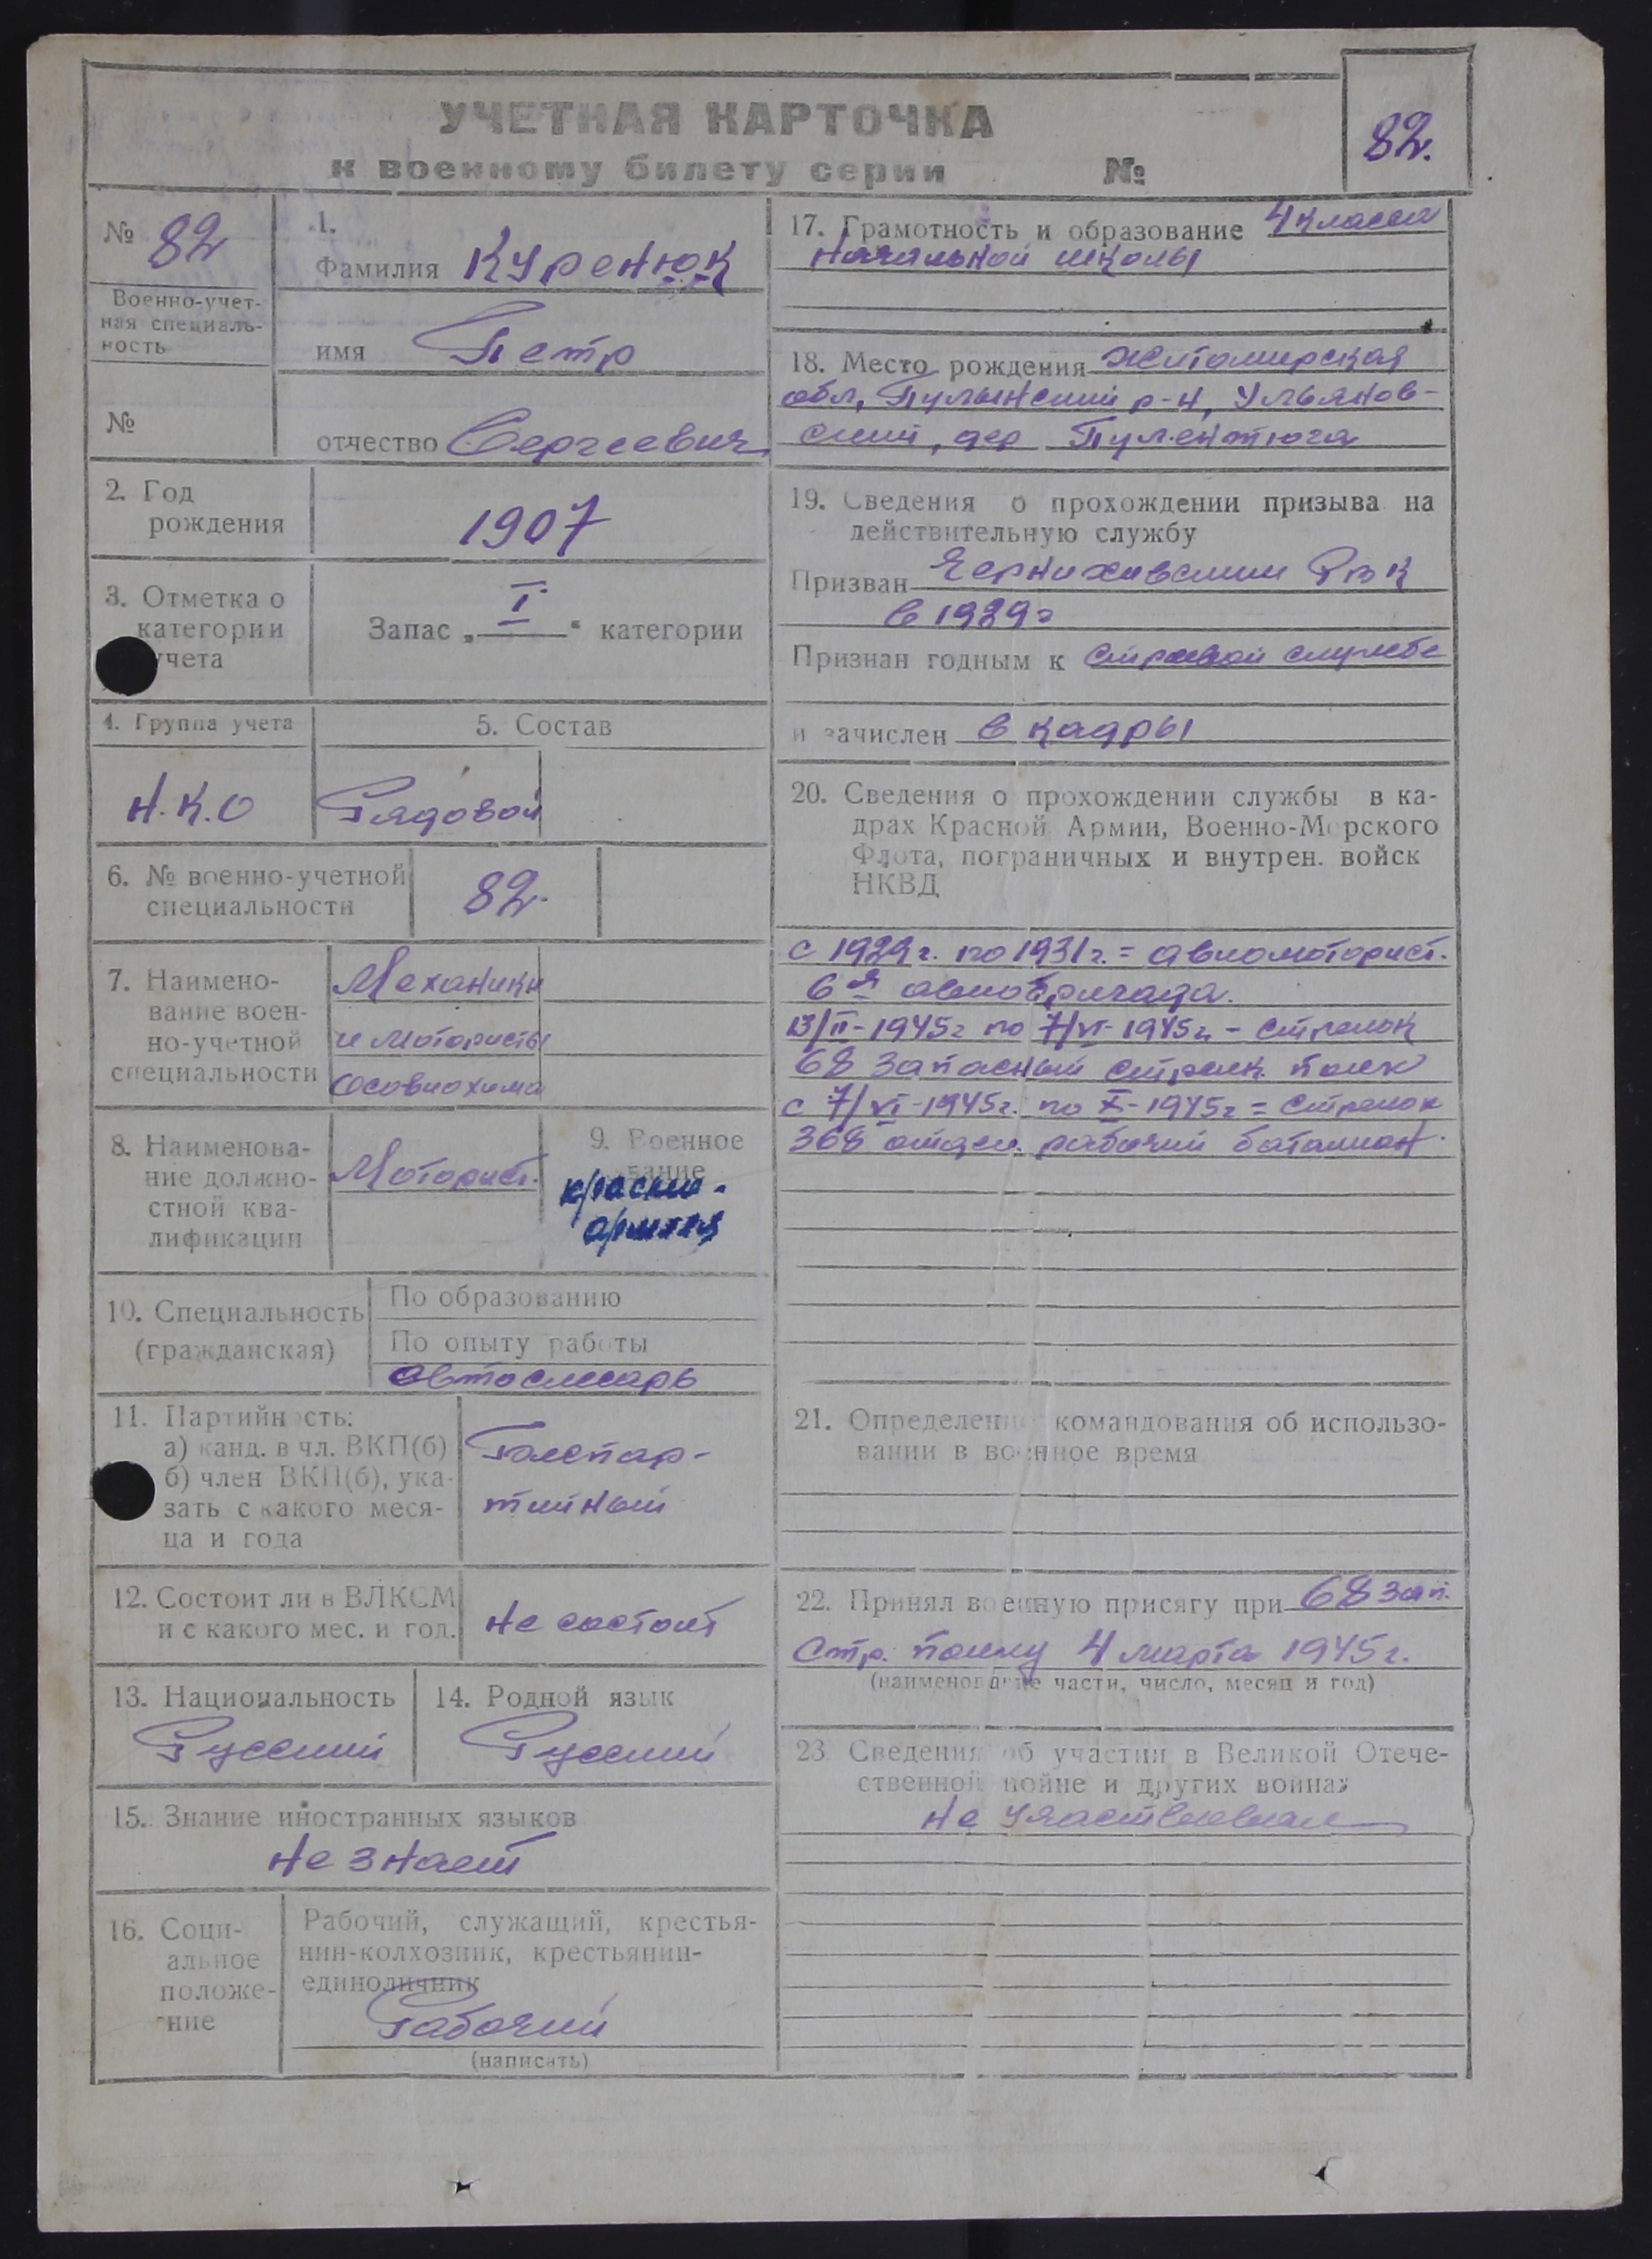 УЧЕТНАЯ КАРТОЧКА
к военному билету серии №
82.
№ 82
Военно-учет-
ная специаль-
ность
№
1.
Фамилия Куренюк
имя Петр
отчество Сергеевич
2. Год
рождения
1907
3. Отметка о
категории
учета
Запас „I" категории
4. Группа учета
Н.К.О
5. Состав
Рядовой
6. № военно-учетной
специальности
82.
7. Наимено-
вание воен-
но-учетной
специальности
Механики
и мотористы
Осовиохима
8. Наименова-
ние должно-
стной ква-
лификации
Моторист.
9. Военное
звание
красно-
армеец
10. Специальность
(гражданская)
По образованию
По опыту работы
Автослесарь
11. Партийность:
а) канд. в чл. ВКП(б)
б) член ВКП(б), ука-
зать с какого меся-
ца и года
Беспар-
тийный
12. Состоит ли в ВЛКСМ
и с какого мес. и год.
Не состоит
13. Национальность
Русский
14. Родной язык
Русский
15. Знание иностранных языков
Не знает
16. Соци-
альное
положе-
ние
Рабочий, служащий, крестья-
нин-колхозник, крестьянин-
единоличник
Рабочий
(написать)
17. Грамотность и образование 4 класса
начальной школы
18. Место рождения Житомирская
обл, Пулынский р-н, Ульянов-
ский, дер
19. Сведения о прохождении призыва на
действительную службу
Призван РВК
в 1929г
Признан годным к строевой службе
и зачислен в кадры
20. Сведения о прохождении службы в ка-
драх Красной Армии, Военно-Морского
Флота, пограничных и внутрен. войск
НКВД
с 1929г. по 1931г. = авиомоторист.
6я авиобригада.
13/II-1945г по 7/VI-1945г - стрелок
68 Запасный стрелк. полк
с 7/VI-1945г. по X-1945г = стрелок
368 отдел. рабочий батальон.
21. Определение командования об использо-
вании в военное время
22. Принял военную присягу при 68 зап.
Стр. полку 4 марта 1945г.
(наименование части, число, месяц и год)
23. Сведения об участии в Великой Отече-
ственной войне и других войнах
Не участвовал